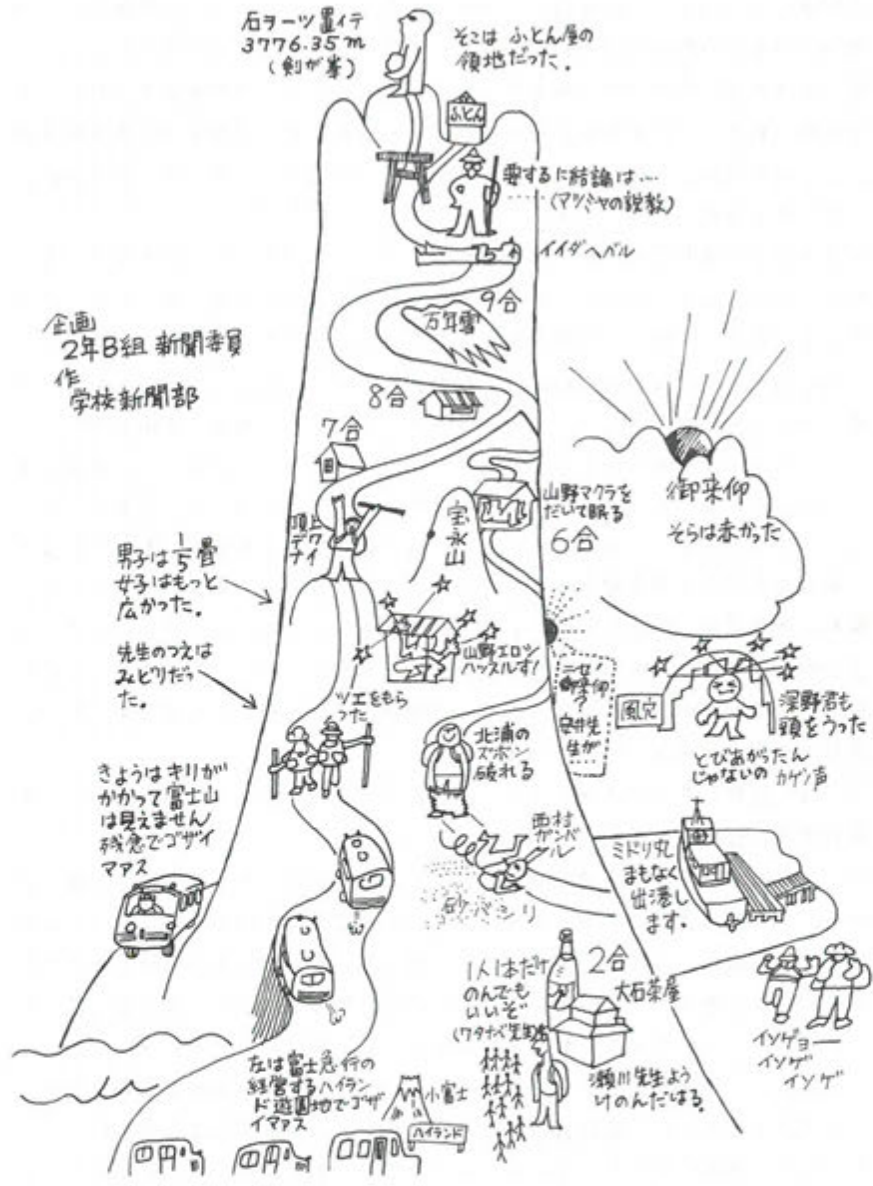 石ヲ一ツ置イテ
3776.35m
(剣が峯)
そこは ふとん屋の
領地だった.
ふとん
要するに結論は…
(マツミヤの説教)
イイダヘバル
9合
万年雪
企画
2年B組 新聞委員
作
学校新聞部
8合
7合
頂上
デワ
ナイ
宝永山
山野マクラを
だいて眠る
6合
御来仰
そらは赤かった
男子は1/5畳
女子はもっと
広かった。
先生のつえは
みどりだっ
た。
山野エロシ
ハッスルす!
ツエをもら
った
ニセ!
御来仰
?
安井先
生が
風穴
深野君も
頭をうった
とびあがったん
じゃないの カゲノ声
北浦の
ズボン
破れる
西村
ガンバ
ル
砂バシリ
きょうはキリが
かかって富士山
は見えません
残念でゴザイ
マァス
ミドリ丸
まもなく
出港し
ます。
1人1本だけ
のんでも
いいぞ
2合
大石茶屋
瀬川先生よう
けのんだはる。
イソゲョー
イソゲ
イソゲ
左は富士急行の
経営するハイラン
ド遊園地でゴザ
イマァス
小富士
ハイランド